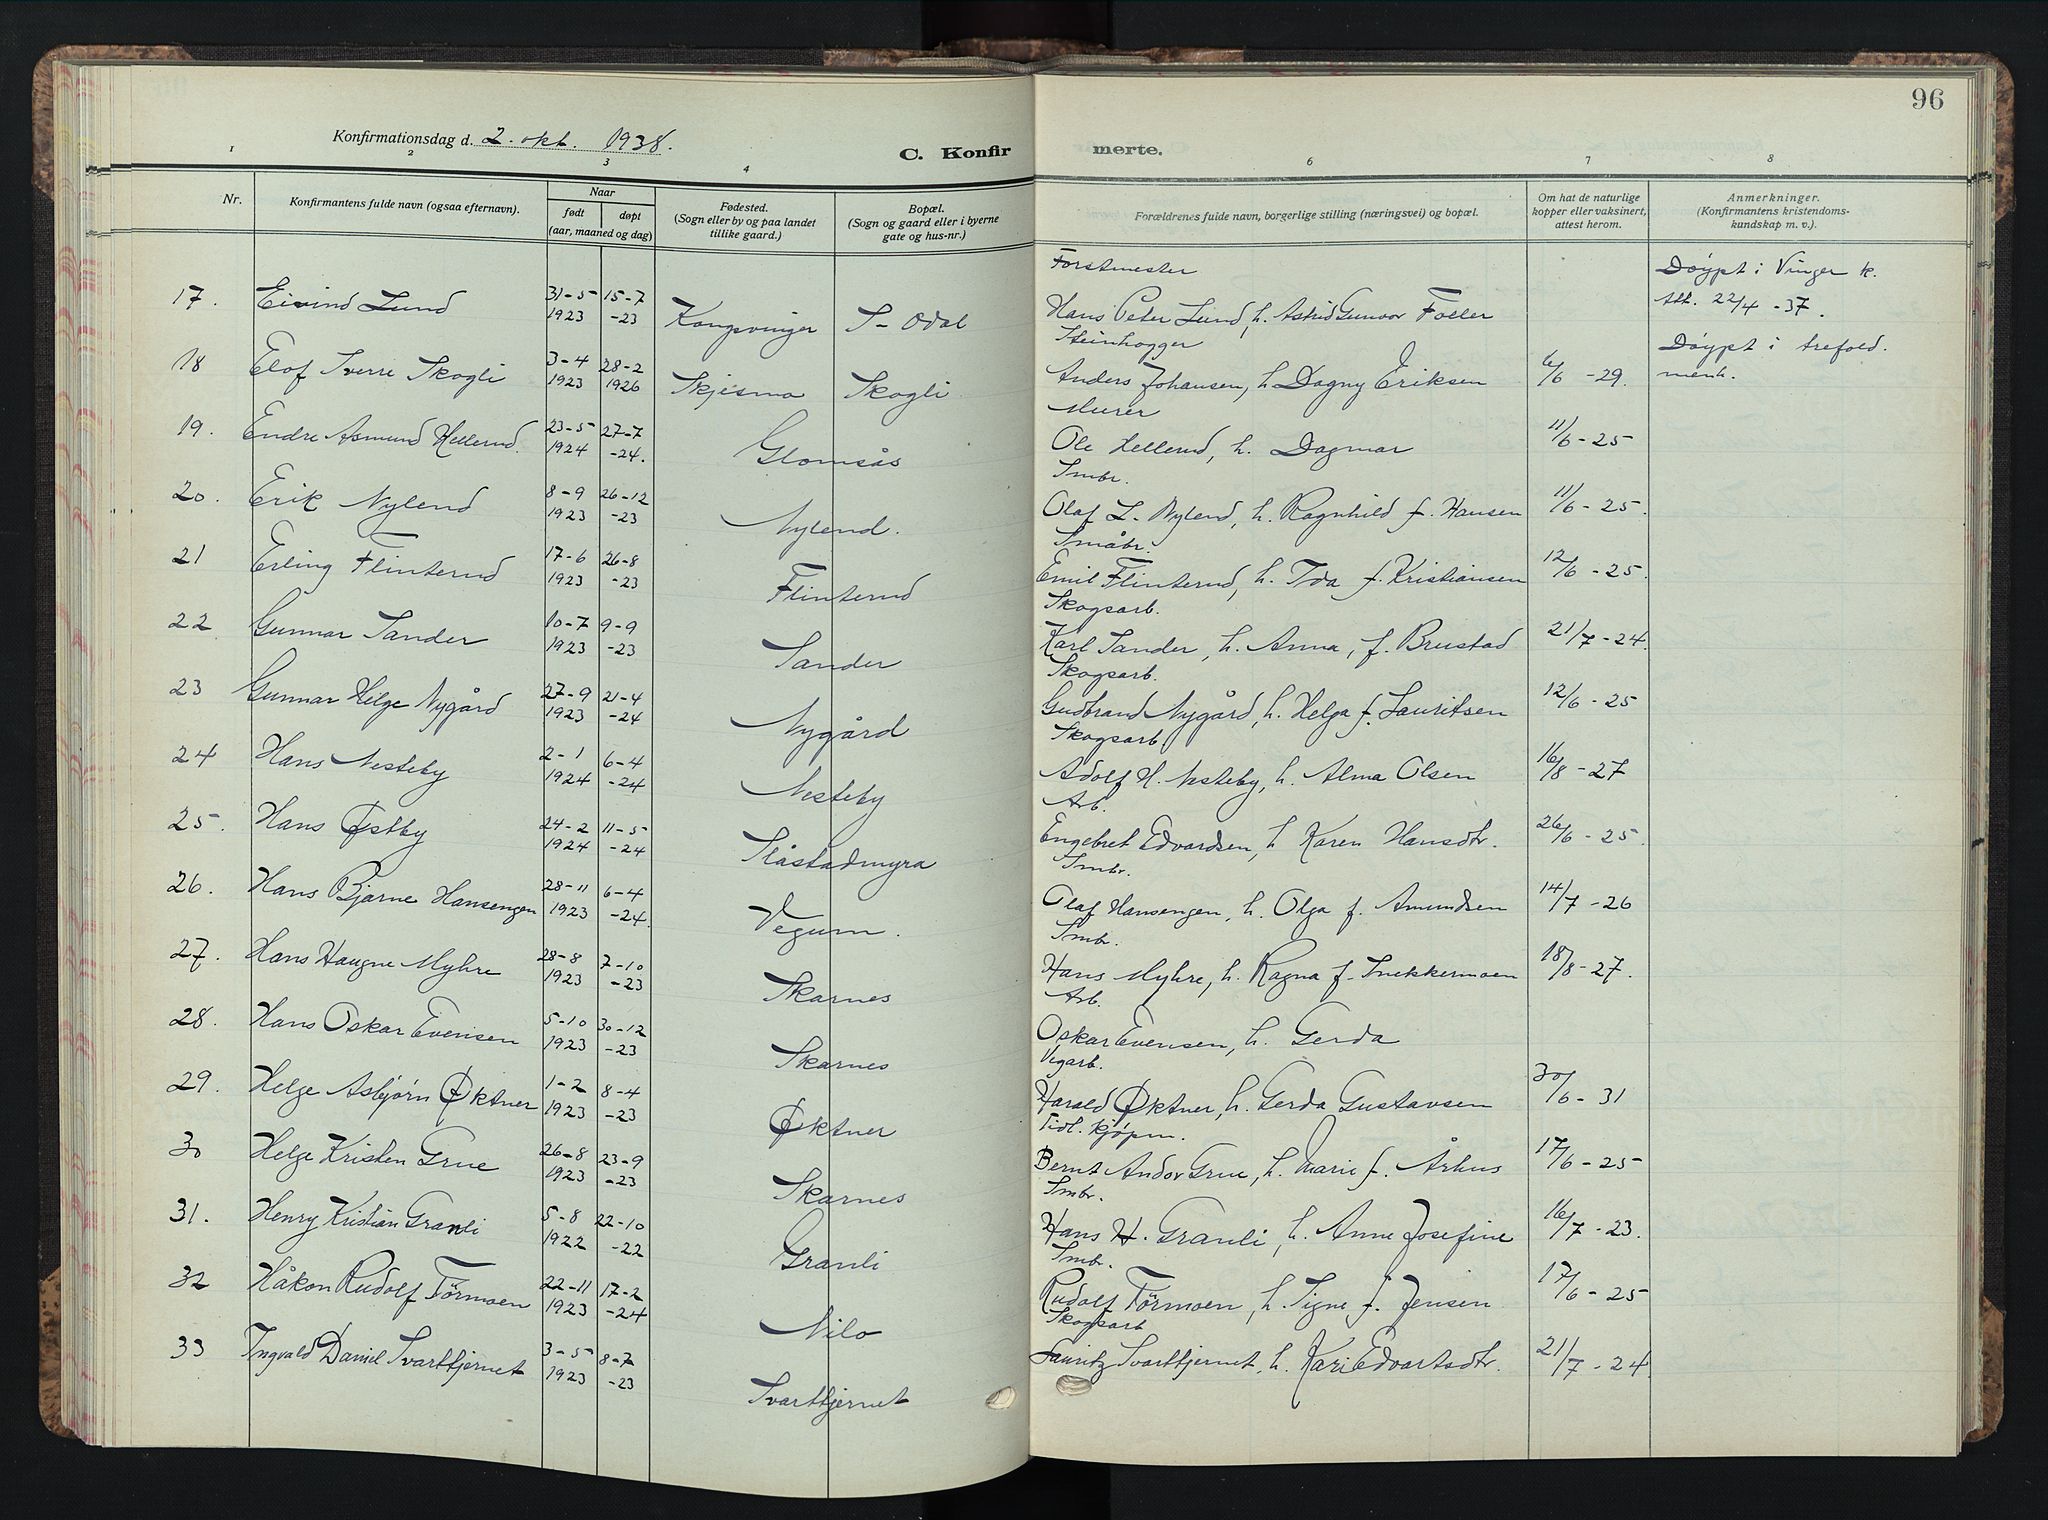 96
Konfirmationsdag d. 2. okt. 1938.
C. Konfirmerte.
1 2 3 4 6 7 8
Nr. Konfirmantens fulde navn (ogsaa efternavn). Naar født døpt (aar, maaned og dag) Fødested. (Sogn eller by og paa landet tillike gaard.) Bopæl. (Sogn og gaard eller i byerne gate og hus-nr.) Forældrenes fulde navn, borgerlige stilling (næringsvei) og bopæl. Om hat de naturlige kopper eller vaksinert, attest herom. Anmerkninger. (Konfirmantens kristendomskundskap m. v.).
17. Eivind Lund 31-5 1923 15-7 -23 Kongsvinger S-Odal Forstmester Hans Peter Lund, h. Astrid Gunvor Foller Døypt i Vinger k. Att. 22/4 -37.
18 Elof Sverre Skogli 3-4 1923 28-2 1926 Skjesmo Skogli Steinhogger Anders Johansen, h. Dagny Eriksen 6/6 -29. Døypt i Arefold. menh.
19. Endre Asmund Hellerud. 23-5 1924 27-7 -24. Glomsås Murer Ole Hellerud, h. Dagmar 11/6 -25
20. Erik Nylend 8-9 1923 26-12 -23 Nylend. Smbr. Olaf L. Nylend, h. Ragnhild f. Hansen 11/6 -25.
21 Erling Flinterud 17-6 1923 26-8 -23 Flinterud Småbr. Emil Flinterud, h. Ida f. Kristiansen 12/6 -25.
22. Gunnar Sander 10-7 1923 9-9 -23 Sander Skogsarb. Karl Sander, h. Anna, f. Brustad 21/7 -24.
23 Gunnar Helge Nygård 27-9 1923 21-4 -24 Nygård Skogsarb. Gudbrand Nygård, h. Helga f. Lauritsen 12/6 -25
24 Hans Nesteby 2-1 1924 6-4 -24 Nesteby Skogsarb Adolf H. Nesteby, h. Alma Olsen 16/8 -27
25. Hans Østby 24-2 1924 11-5 -24 Slåstadmyra Arb. Engebret Edvardsen, h Karen Hansdtr. 26/6 -25.
26. Hans Bjarne Hansengen 28-11 1923 6-4 -24. Vegum. Smbr. Olaf Hansengen, h. Olga f. Amundsen 14/7 -26
27. Hans Haugne Myhre 28-8 1923 7-10 -23 Skarnes Smbr. Hans Myhre, h. Ragna f. Snekkermoen 18/8 -27.
28. Hans Oskar Evensen 5-10 1923 30-12 -23 Skarnes Arb. Oskar Evensen, h. Gerda
29. Helge Asbjørn Øktner 1-2 1923 8-4 -23 Øktner Vegarb. Harald Øktner, h. Gerda Gustavsen 30/6 -31
30 Helge Kristen Grue 26-8 1923 23-9 -23 Skarnes Tidl. kjøpm. Bernt Andor Grue, h. Marie f. Århus 17/6 -25
31. Henry Kristian Granli 5-8 1922 22-10 -22 Granli Smbr. Hans H. Granli, h. Anne Josefine 16/7 -23.
32 Håkon Rudolf Tørmoen 22-11 1923 17-2 -24 Nilo Smbr. Rudolf Tørmoen, h. Signe f. Jensen 17/6 -25
33 Ingvald Daniel Svarttjernet 3-5 1923 8-7 -23 Svarttjernet Skogsarb Lauritz Svarttjernet, h. Kari Edvartsdtr. 21/7 -24